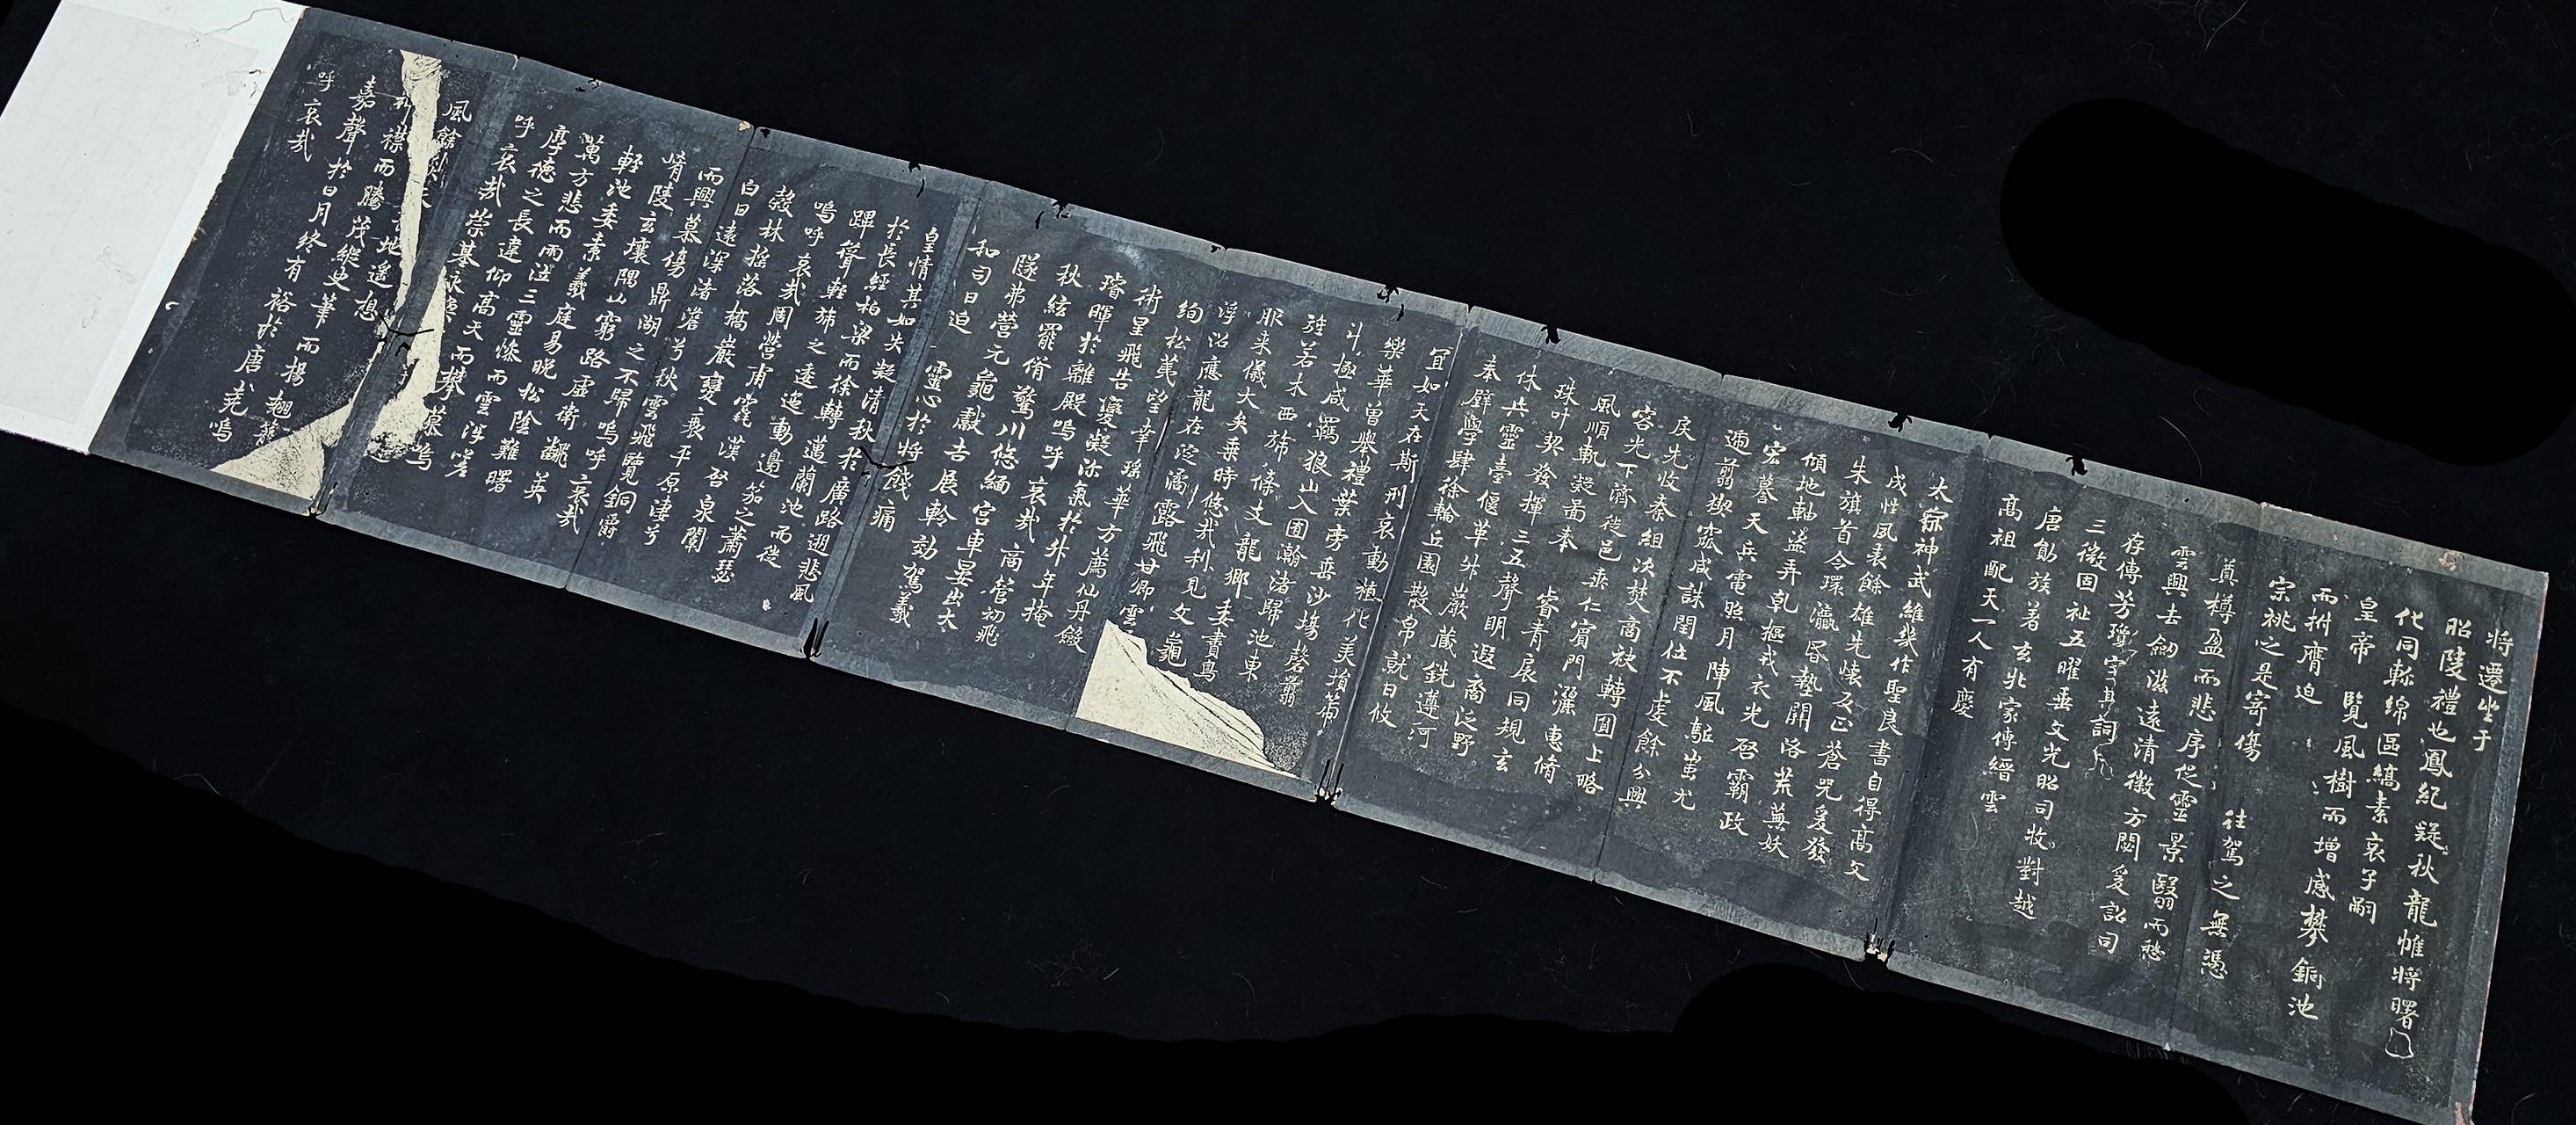 將遷坐于
昭陵禮也鳳紀疑秋龍帷將曙
化同軫綿區縞素哀子嗣
皇帝覽風樹而增感攀銅池
而拊膺迫
宗祧之是寄傷往駕之無憑
奠樽盈而悲序促靈景翳而愁
雲興去劒滋遠清徽方閟爰詔司
存傳芳瓊字其詞
三微固祉五曜垂文光昭司牧對越
唐勛族著玄兆家傳縉雲
髙祖配天一人有慶
太宗神武維幾作聖良書自得髙文
成性風表餘雄先懷反正蒼咒爰發
朱旗首令環瀛昏墊關洛荒蕪妖
傾地軸盜弄乾樞戎衣光啓霸政
宏謩天兵電照月陣風駈蚩尤
遄翦猰窳咸誅閏位不虔餘分興
戾先收秦組次焚商袂轉圓上略
容光下濟從邑垂仁賔門灑惠脩
風順軌凝啚奉睿青展同規玄
珠叶契發揮三五聲明遐裔泛野
休兵靈臺偃革外嚴蔵銑遵河
奉辟學肆徐輪丘園散帛就日攸
宜如天在斯刑哀動植化美塤箎
樂華曽舉禮葉旁垂沙塲罄翦
斗極咸羈狼山入囿瀚渚歸池東
旌若木西斾條支龍鄉委書鳥
服来儀大矣乗時悠哉利見文龜
浮沼應龍在淀潏露飛甘卿雲
絢松蒐望幸瑤華方薦仙丹歛
術星飛告變凝沴氣於外年掩
璿暉於離殿嗚呼哀哉商管初飛
秋絃罷脩驚川悠緬宫車晏出大
隧弗營元龜獻吉展軨効駕羲
和司日迫靈心於將餞痛
皇情其如失凝清秋於廣路迴悲風
於長經柏梁而徐轉邁蘭池而從
蹕聲輕斾之逶迤動邊笳之蕭瑟
嗚呼哀哉周營甫窆漢啓泉闈
穀林摇落橋巖變衰平原淒兮
白日遠深渚澹兮秋雲飛覽銅爵
而興慕傷鼎湖之不歸嗚呼哀哉
崤陵玄壤隅山窮路虛衛飜英
輕池委素羲庭昜晩松陰難曙
萬方悲而雨泣三靈慘而雲浮嗟
厚德之長違仰高天而攀慕嗚
呼哀哉崇基永
風餘
襟而騰茂縱史筆而揚翹
嘉聲於日月終有裕於唐堯嗚
呼哀哉